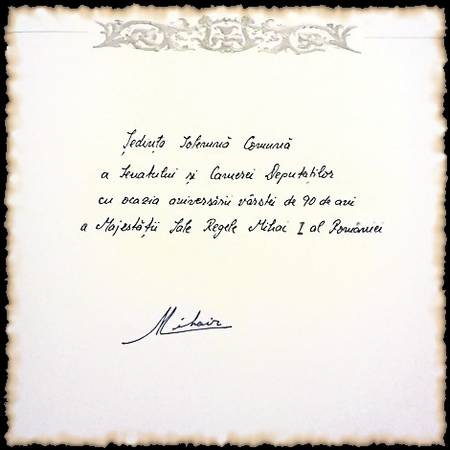 Ședința Solemnă Comună
a Senatului și Camerei Deputaților
cu ocazia aniversării vârstei de 90 de ani
a Majestății Sale Regele Mihai I al României
Mihai R